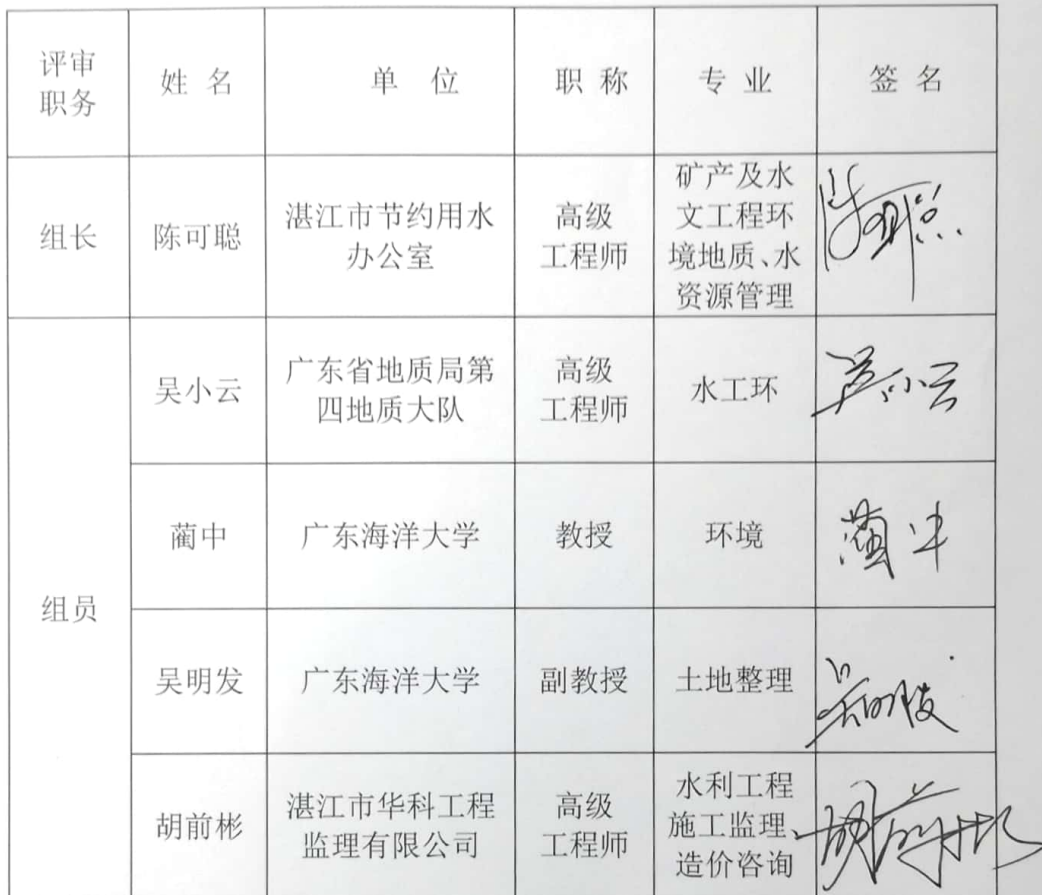 评审
职务
姓 名
单 位
职 称
专 业
签 名
组长
陈可聪
湛江市节约用水
办公室
高级
工程师
矿产及水
文工程环
境地质、水
资源管理
陈可聪
组员
吴小云
广东省地质局第
四地质大队
高级
工程师
水工环
吴小云
蔺中
广东海洋大学
教授
环境
蔺中
吴明发
广东海洋大学
副教授
土地整理
吴明发
胡前彬
湛江市华科工程
监理有限公司
高级
工程师
水利工程
施工监理、
造价咨询
胡前彬